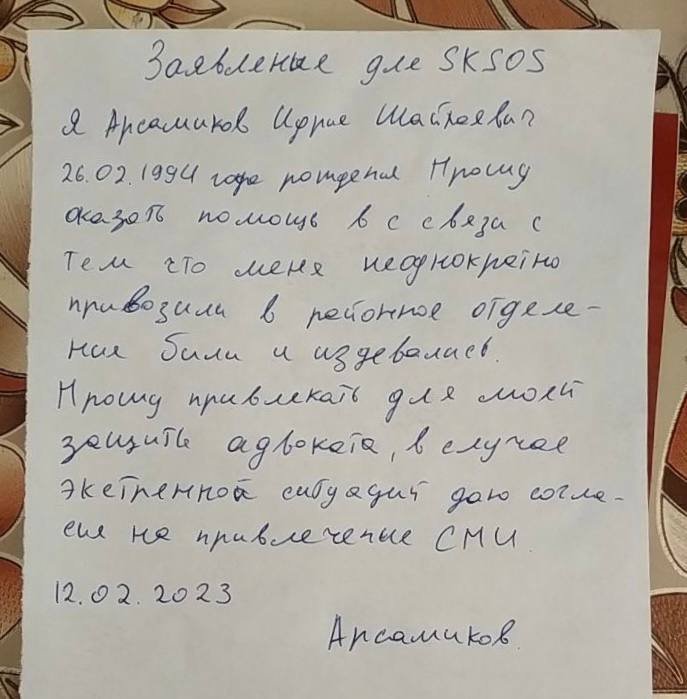 Заявленые для SKSOS
Я Арсамиков Идрис Шайхаевич
26.02.1994 года рождения Прошу
оказать помощь в с связи с
тем что меня неоднократно
привозили в районное отделе-
ния били и издевались.
Прошу привлекать для моей
защиты адвоката, в случае
экстренной ситуаций даю согла-
сия на привлеченые СМИ.
12.02.2023
Арсамиков.